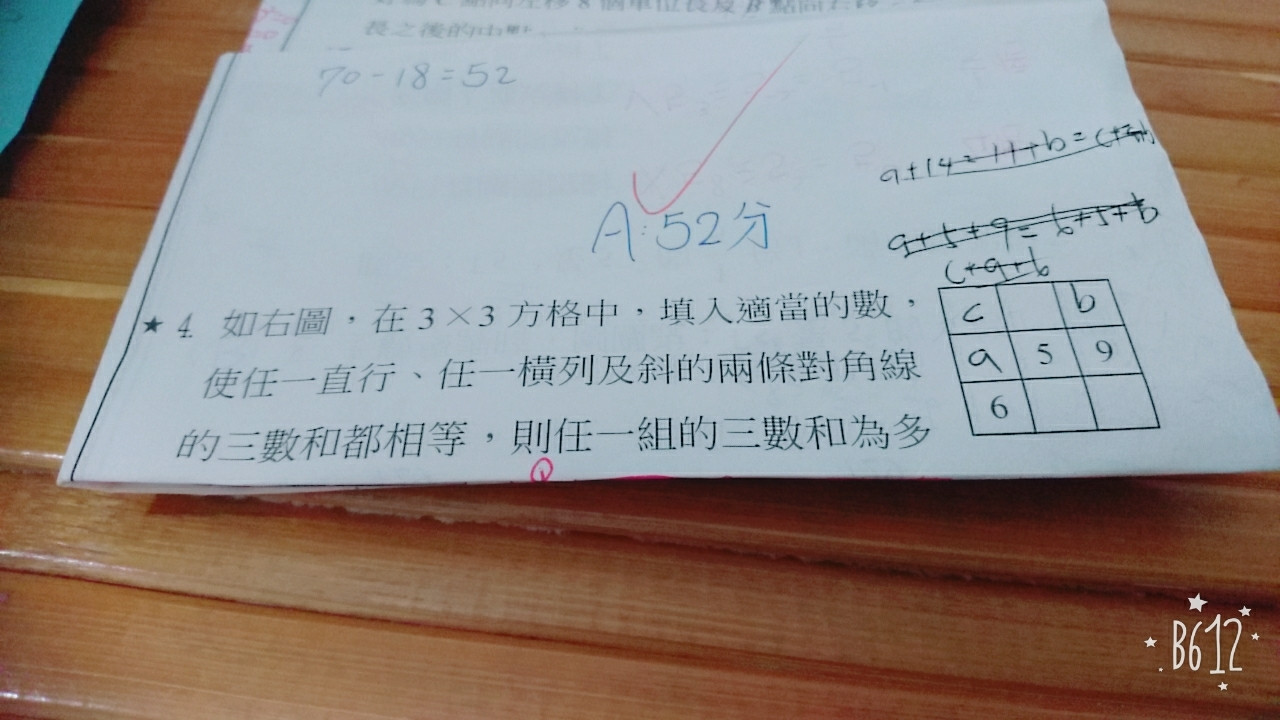 長之後的中點
70-18=52
a+14=11+b=c+
A:52分
a+5+9=6+5+b
c+a+b
★ 4. 如右圖，在 3×3 方格中，填入適當的數，
使任一直行、任一橫列及斜的兩條對角線
的三數和都相等，則任一組的三數和為多
c b
a 5 9
6
B612